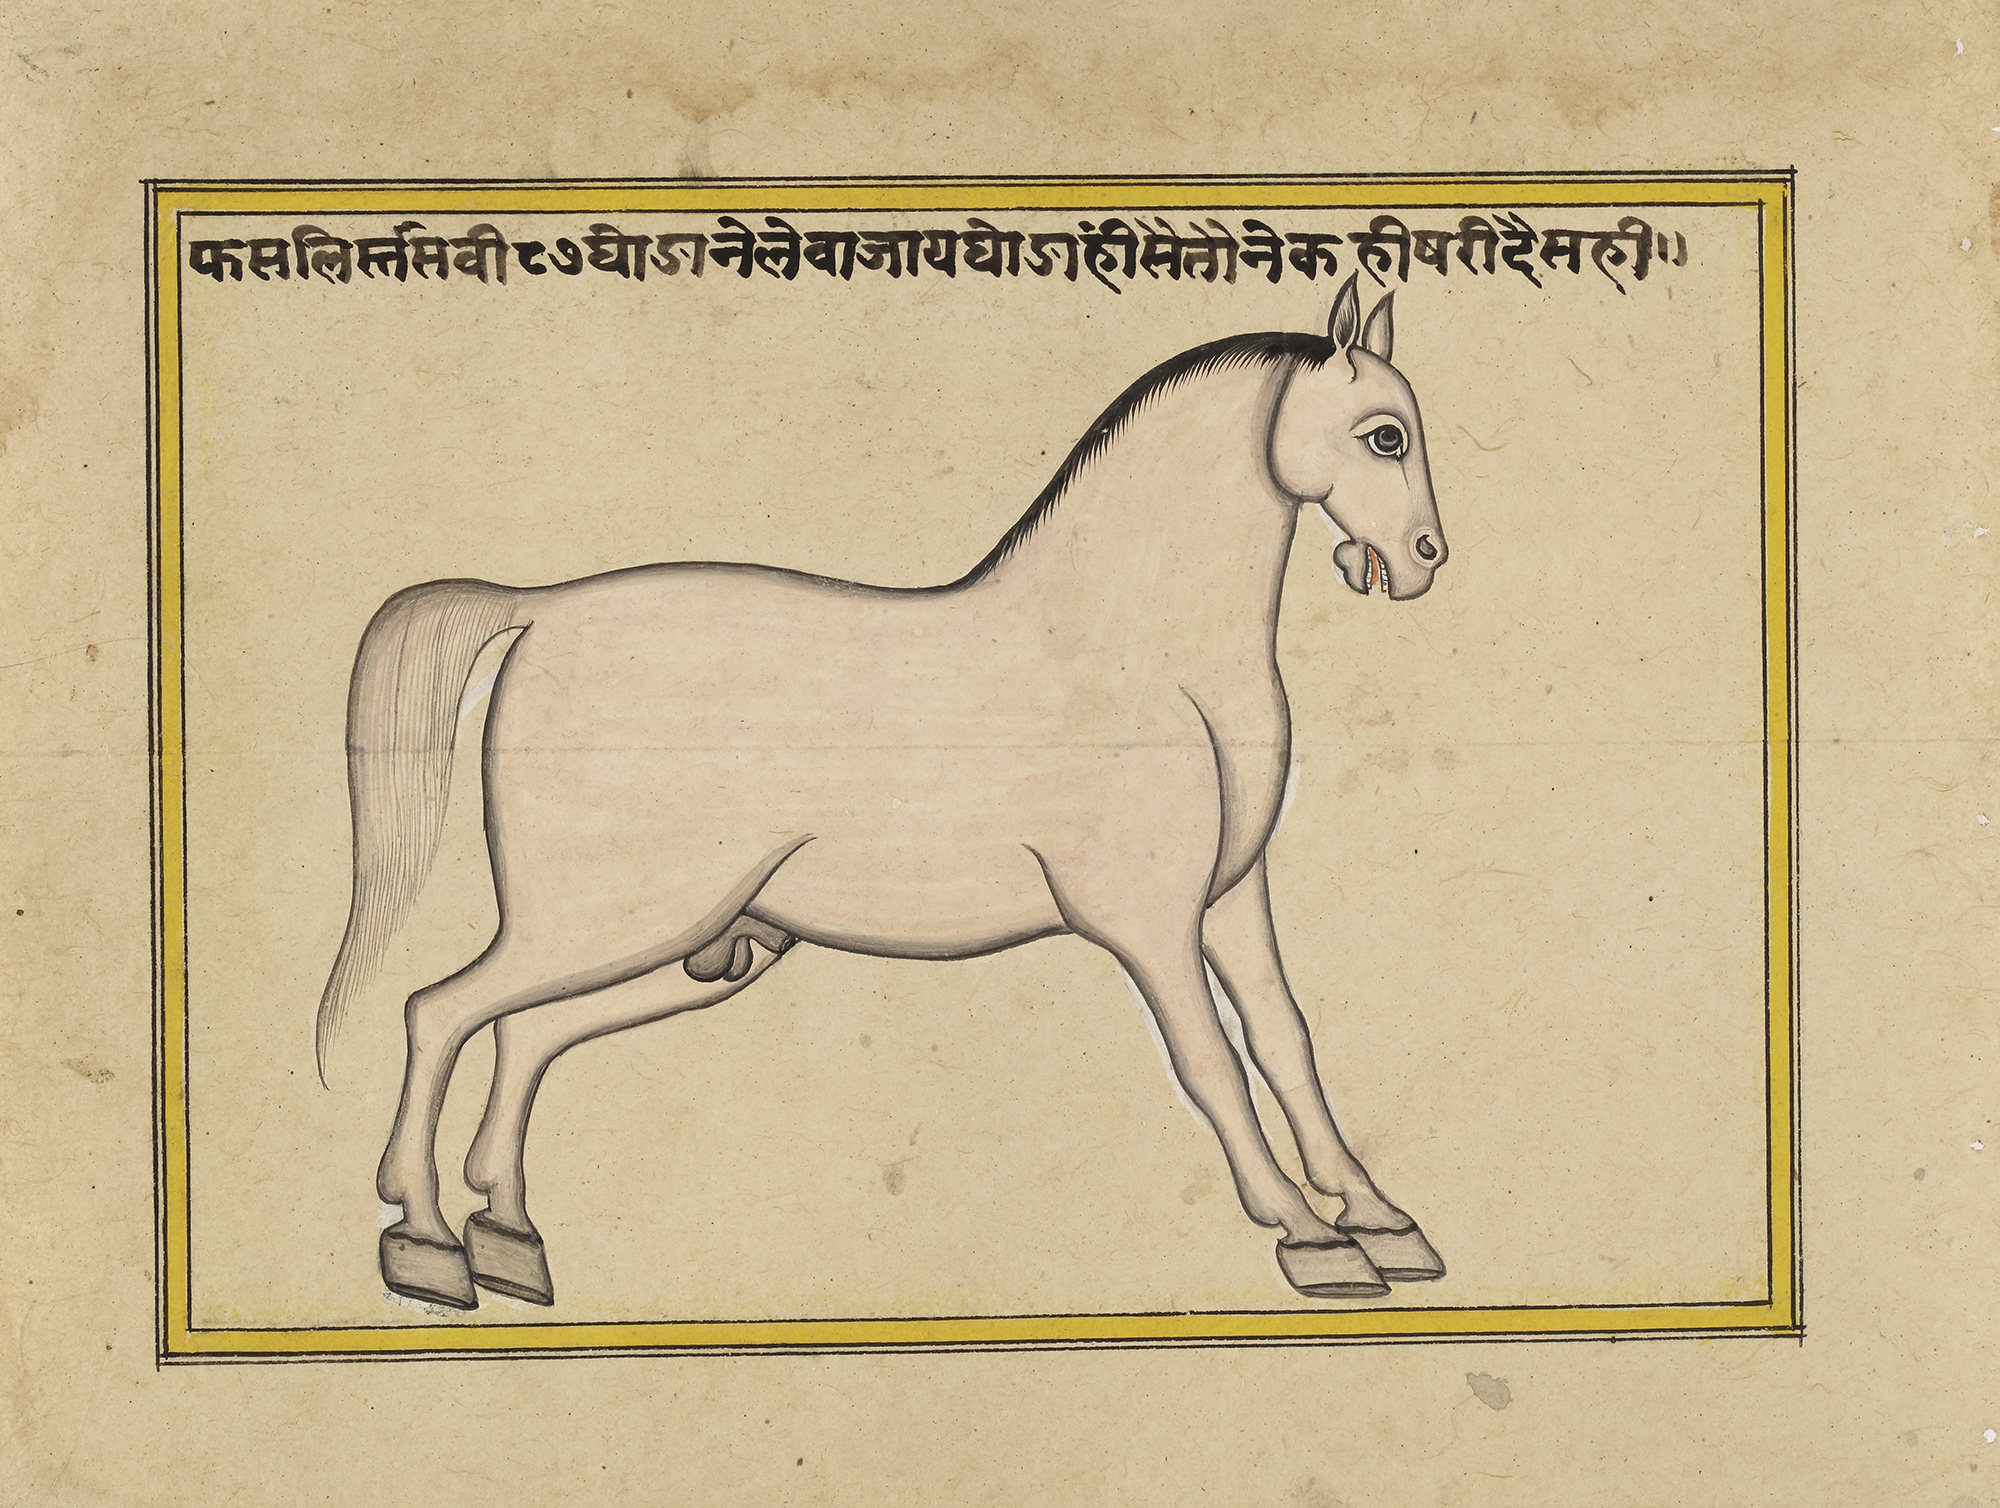 फसलिर्स्तसवी ८७ घोडानेलेवाजायघोडाहींसैतौनेक हीषरीदैसही॥